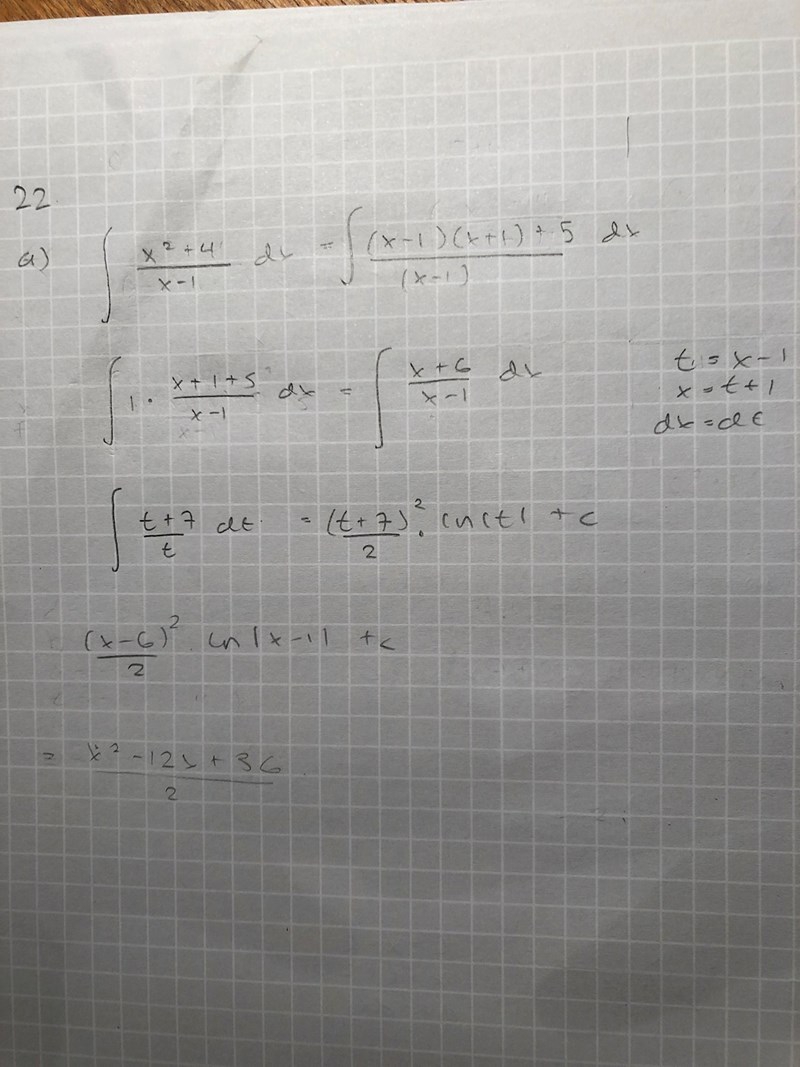 22
a) ∫ (x² + 4)/(x-1) dx = ∫ ((x-1)(x+1) + 5)/(x-1) dx
∫ 1 · (x+1+5)/(x-1) dx = ∫ (x+6)/(x-1) dx
t = x-1
x = t+1
dx = dt
∫ (t+7)/t dt = (t+7)²/2 · ln|t| + c
(x-6)²/2 · ln|x-1| + c
= (x² - 12x + 36)/2